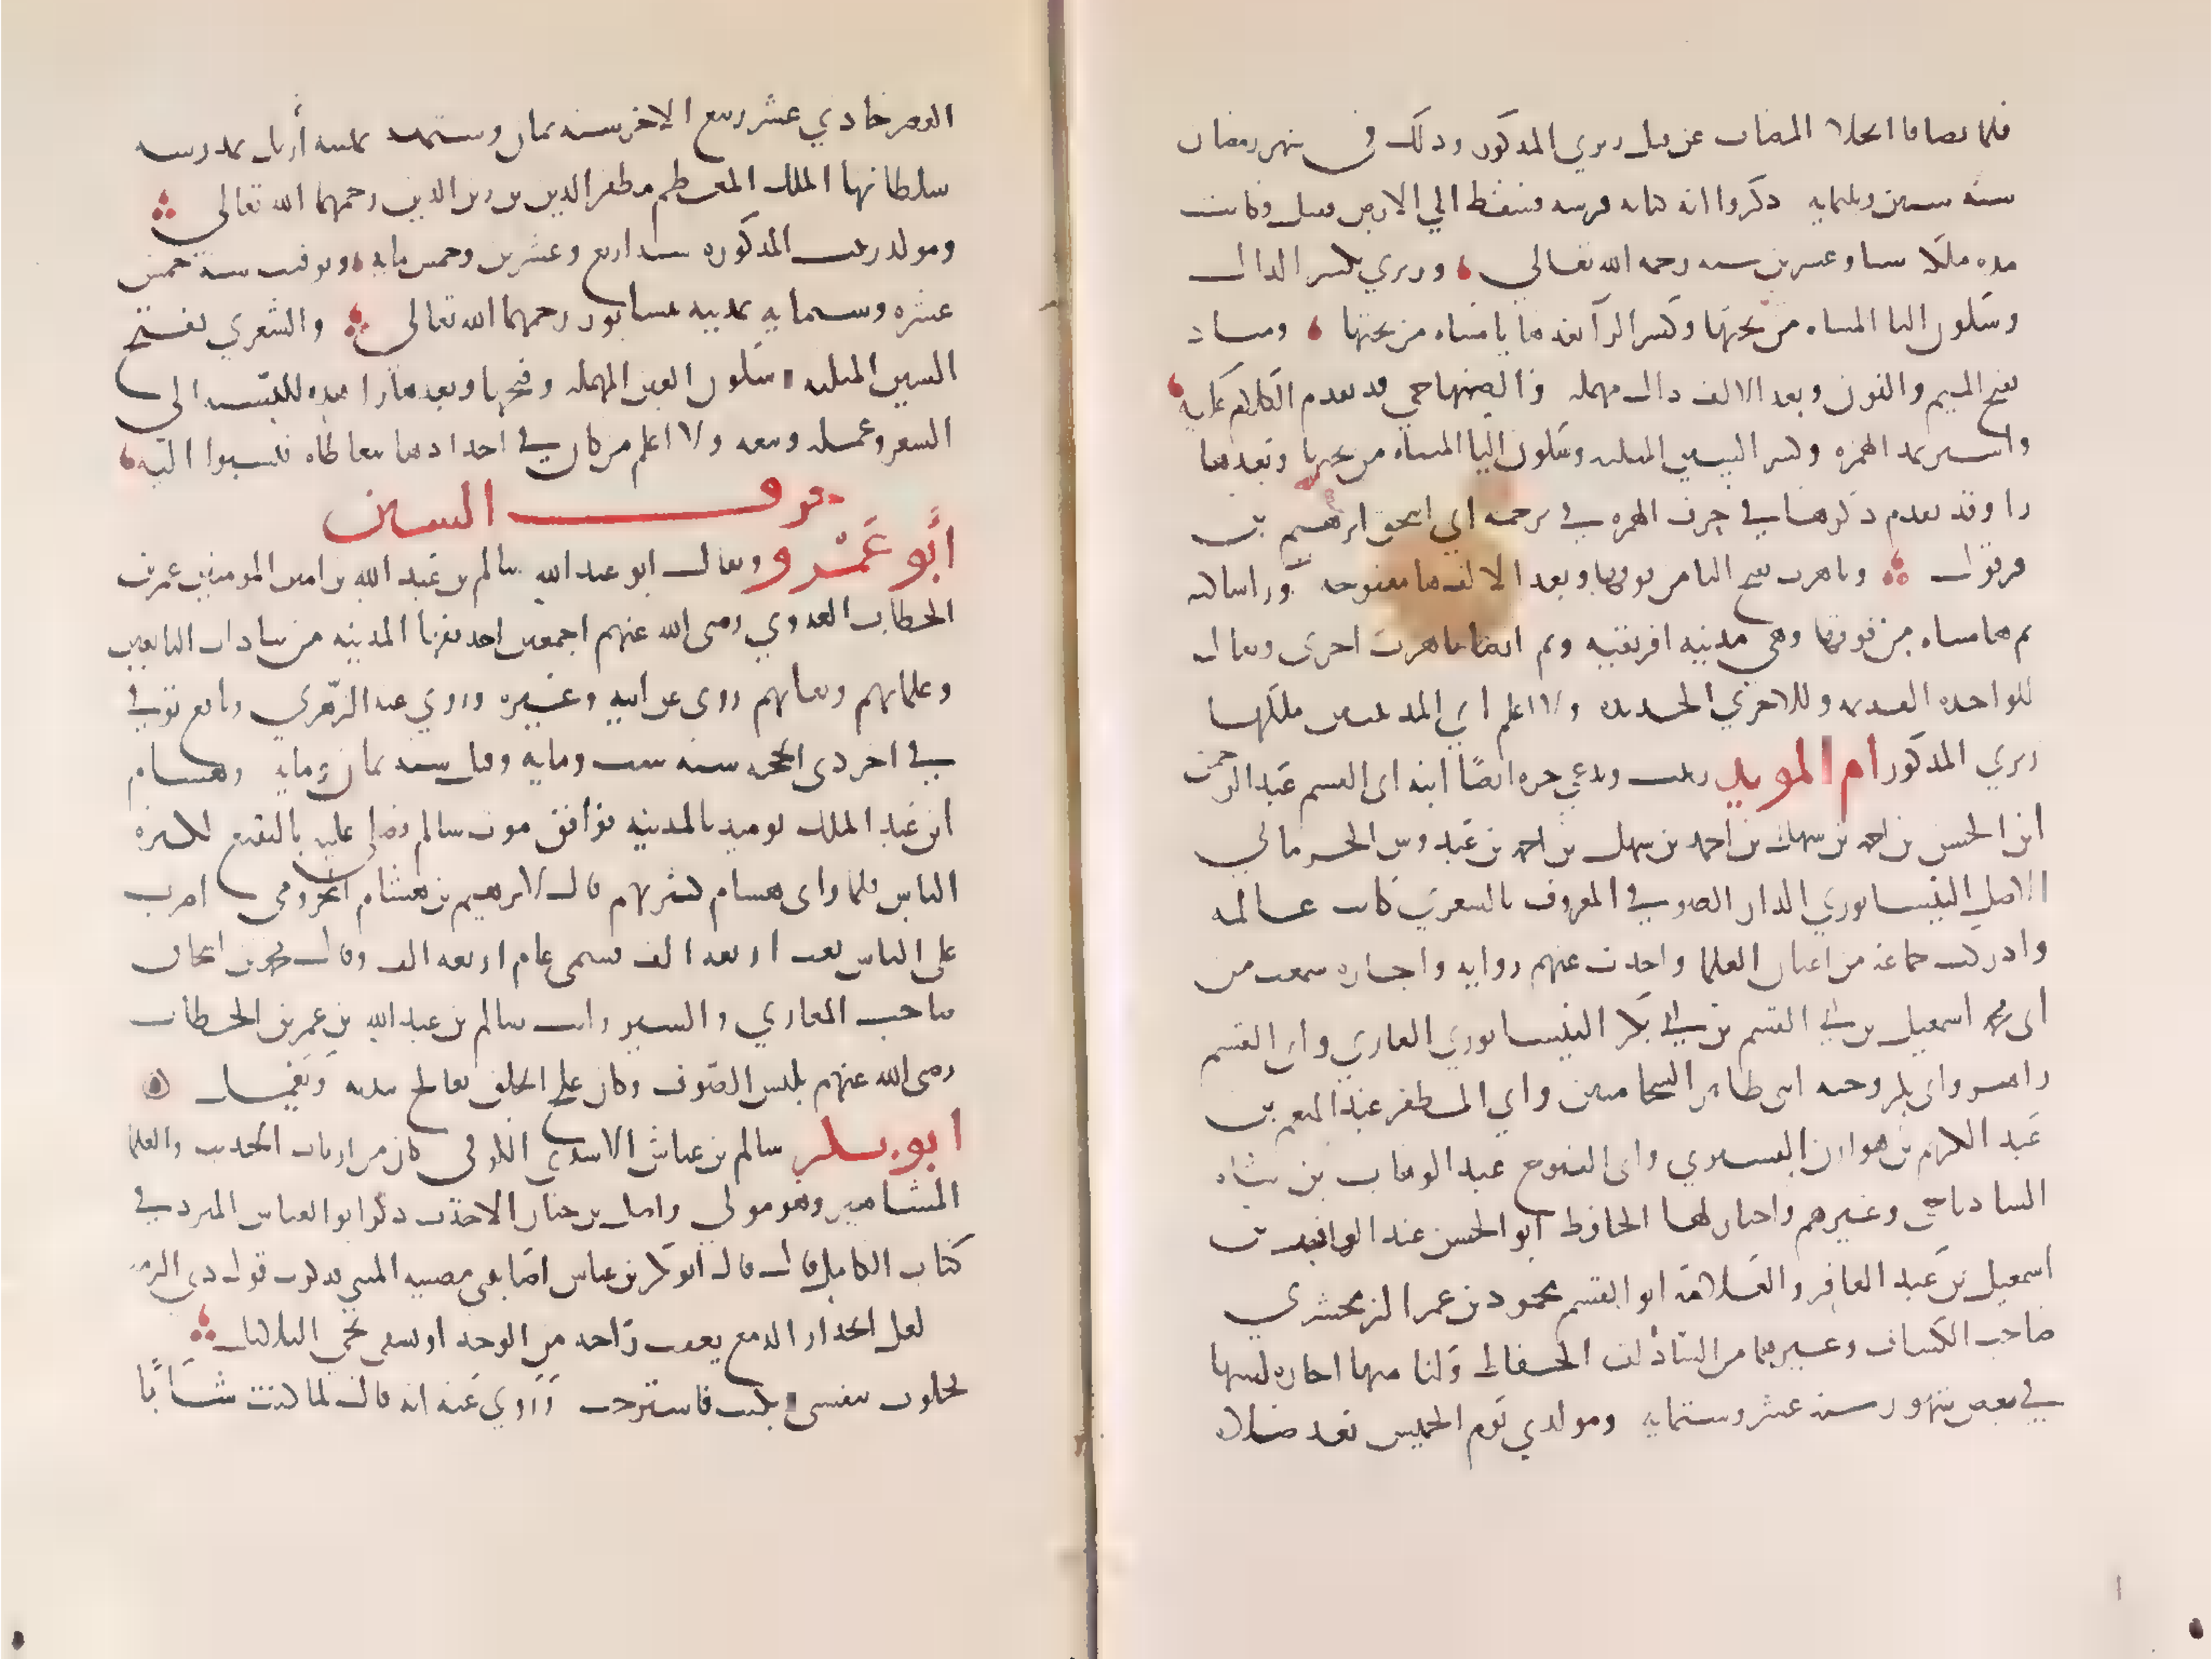 فلما تصافا انجلا المصاف عن قتل زيري المذكور وذلك في شهر رمضان
سنة ستين وثلثمايه ذكروا انه كبابه فرسه فسقط الي الارض فقتل وكانت
مده ملكه ستا وعشرين سنه رحمه الله تعالى وزيري بكسر الزاى
وسكون اليا المثناه من تحتها وكسر الرآ بعدها يا مثناه من تحتها ومناد
بفتح الميم والنون وبعد الالف دال مهمله والصنهاجي قد تقدم الكلام عليه
واشير بمد الهمزه وكسر الشين المثلثه وسكون اليا المثناه من تحتها وبعدها
را وقد تقدم ذكرها في حرف الهمزه في ترجمه ابي اسحق ابرهيم بن
قرقول وتاهرت بفتح التا من فوقها وبعد الالف ها مفتوحه ورا ساكنه
ثم تا مثناه من فوقها وهي مدينه افريقيه وثم ايضا تاهرت اخرى ويقال
للواحده القديمه وللاخري الحديده ولا اعلم اي المدينتين ملكها
زيري المذكور ام المويد زينب وتدعي حره ايضًا ابنه ابى القسم عبد الرحمن
ابن الحسن بن احمد بن سهل بن احمد بن سهل بن احمد بن عبدوس الجرجاني
الاصل النيسابوري الدار الصوفي المعروف بالشعري كانت عالمه
وادركت جماعة من اعيان العلما واخذت عنهم روايه واجازه سمعت من
ابى محمد اسمعيل بن ابي القسم بن ابي بكر النيسابوري القاري وابى القسم
زاهر وابى بكر وجيه ابنى طاهر الشحاميين وابي المظفر عبد المنعم بن
عبد الكريم بن هوازن القشيري وابى الفتوح عبد الوهاب بن شاه
الشاذياخي وغيرهم واجاز لها الحافظ ابو الحسن عبد الغافر بن
اسمعيل بن عبد الغافر والعلامة ابو القسم محمود بن عمر الزمخشري
صاحب الكشاف وغيرهما من السادات الحفاظ ولنا منها اجازه كتبتها
في بعض شهور سنة عشر وستمايه ومولدي يوم الخميس بعد صلاه
العصر حادي عشر ربيع الاخر سنه ثمان وستمه بمدينه أربل بمدرسه
سلطانها الملك المعظم مظفر الدين بن زين الدين رحمهما الله تعالى
ومولد زينب المذكوره سنه اربع وعشرين وخمس مايه وتوفيت سنة خمس
عشره وستمايه بمدينه نيسابور رحمهما الله تعالى والشعري بفتح
الشين المثلثه وسكون العين المهمله وفتحها وبعدها را هذه النسبه الى
الشعر وعمله وبيعه ولا اعلم من كان في اجدادها يتعاطاه فنسبوا اليه
حرف السين
أبو عَمْرو ويقال ابو عبد الله سالم بن عبد الله بن امير المومنين عمر بن
الخطاب العدوي رضى الله عنهم اجمعين احد فقها المدينه من سادات التابعين
وعلمايهم وثقاتهم روى عن ابيه وغيره وروي عنه الزهري ونافع توفي
في اخر ذى الحجه سنه ست ومايه وقيل سنه ثمان ومايه وهشام
ابن عبد الملك يوميذ بالمدينه فوافق موت سالم فصلى عليه بالبقيع لكثره
الناس فلما راى هشام كثرتهم قال لابرهيم بن هشام المخزومي اضرب
على الناس بعث اربعه الف فسمى عام اربعه الف وقال محمد بن اسحاق
صاحب المغازي والسير رايت سالم بن عبد الله بن عمر بن الخطاب
رضى الله عنهم يلبس الصوف وكان علج الخلق يعالج بيديه ويعمل
ابو بكر سالم بن عياش الاسدي الكوفي كان من ارباب الحديث والعلما
المشاهير وهو مولي واصل بن حيان الاحدب ذكر ابو العباس المبرد في
كتاب الكامل قال قال ابو بكر بن عياش اصابتني مصيبه المتنى فذكرت قول ذى الرمه
لعل انحدار الدمع يعقب راحه من الوجد او يشفي نجي البلابل
فخلوت بنفسي وبكيت فاسترحت وروي عنه انه قال لما كنت شَابًّا